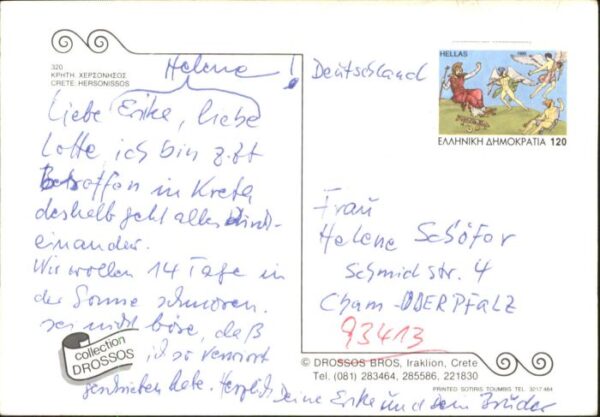 320
ΚΡΗΤΗ ΧΕΡΣΟΝΗΣΟΣ
CRETE HERSONISSOS
Helene !
Liebe Erike, liebe
Lotte, ich bin z.Zt
in Kreta
deshalb geht alles durch-
einander.
Wir wollen 14 Tage in
der Sonne schmoren.
sei nicht böse, daß
ich so verworrt
geschrieben habe. Herzlichst Deine Erike und dem Brüder
collection
DROSSOS
Deutschland
HELLAS
1995
ΕΛΛΗΝΙΚΗ ΔΗΜΟΚΡΑΤΙΑ 120
Frau
Helene Schöfer
Schmidstr. 4
Cham-OBERPFALZ
93413
© DROSSOS BROS, Iraklion, Crete
Tel. (081) 283464, 285586, 221830
PRINTED SOTIRIS TOUMBIS TEL. 3217.464